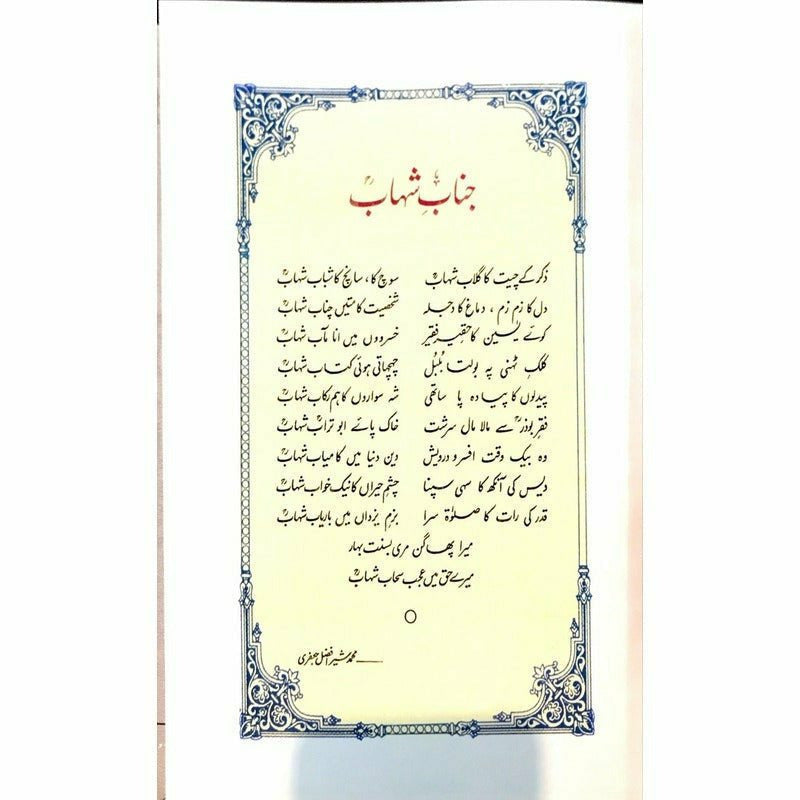 جنابِ شہابؒ
ذکر کے چیت کا گلاب شہابؒ سوچ کا، سانچ کا شباب شہابؒ
دل کا زم زم، دماغ کا دجلہ شخصیت کا متیں چناب شہابؒ
کوئے یٰسین کا حقیر فقیر خسرووں میں انا مآب شہابؒ
کلکِ ٹہنی پہ بولتا بُلبُل چہچہاتی ہوئی کتاب شہابؒ
پیدلوں کا پیادہ پا ساتھی شہ سواروں کا ہم رکاب شہابؒ
فقرِ بوذرؓ سے مالا مال سرشت خاک پائے ابو ترابؓ شہابؒ
وہ بیک وقت افسر و درویش دین دنیا میں کامیاب شہابؒ
دیس کی آنکھ کا سہی سپنا چشمِ حیراں کا نیک خواب شہابؒ
قدر کی رات کا صلوٰۃ سرا بزمِ یزداں میں باریاب شہابؒ
میرا پھاگن مری بسنت بہار
میرے حق میں عجب سحاب شہابؒ
محمد شیر افضل جعفری